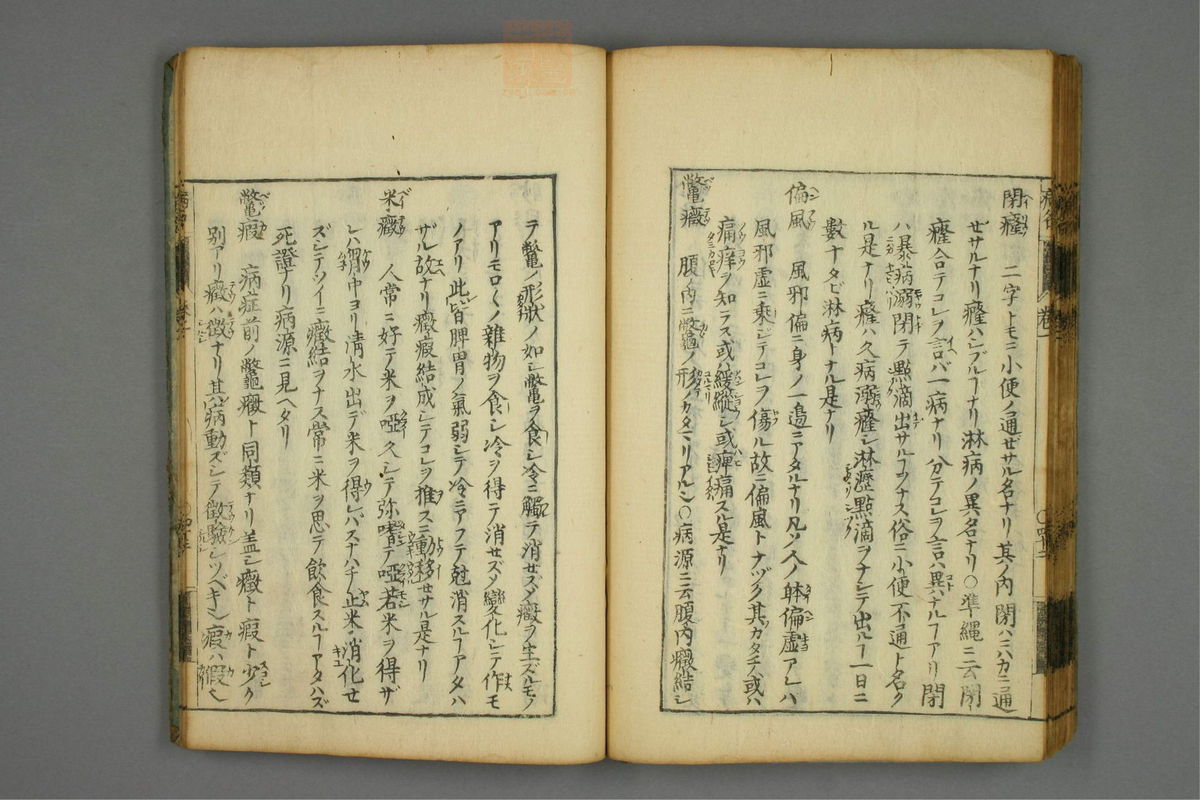 閉癃　二字トモニ小便ノ通ゼサル名ナリ其ノ内閉ハニハカニ通
ゼサルナリ癃ハシブルヿナリ淋病ノ異名ナリ〇準縄ニ云閉
癃合テコレヲ言バ一病ナリ分テコレヲ言ハ異ナルヿアリ閉
ハ暴病溺閉テ點滴出サルヿヲナス俗ニ小便不通ト名ク
ル是ナリ癃ハ久病溺癃シ淋瀝點滴ヲナシテ出ルヿ一日ニ
數十タビ淋病トナル是ナリ
偏風　風邪偏ニ身ノ一邉ニアタルナリ凡ソ人ノ躰偏虚アレハ
風邪虚ニ乗シテコレヲ傷ル故ニ偏風トナヅク其カタチ或ハ
痛痒ヲ知ラス或ハ緩縦シ或痺痛スル是ナリ
鼈癥　腹ノ内ニ鼈ノ形ノカタマリアルヿ〇病源ニ云腹内癥結シ
テ鼈ノ形狀ノ如シ鼈ヲ食シ冷ニ觸テ消セズ癥ヲ生ズルモノ
アリモロ〱ノ雜物ヲ食シ冷ヲ得テ消セズ變化シテ作モ
ノアリ此皆脾胃ノ氣弱シテ冷ニアフテ尅消スルヿアタハ
ザル故ナリ癥瘕結成シテコレヲ推スニ動移セサル是ナリ
米癥　人常ニ好テ米ヲ啞久シテ弥嗜テ啞若米ヲ得ザ
レハ胃中ヨリ清水出デ米ヲ得レバスナハチ止米消化セ
ズシテツイニ癥結ヲナス常ニ米ヲ思テ飲食スルヿアタハズ
死證ナリ病源ニ見ヘタリ
鼈瘕　病症前ノ鼈癥ト同類ナリ盖シ癥ト瘕ト少ク
別アリ癥ハ徴ナリ其病動ズシテ徴驗シツベキ也瘕ハ假也